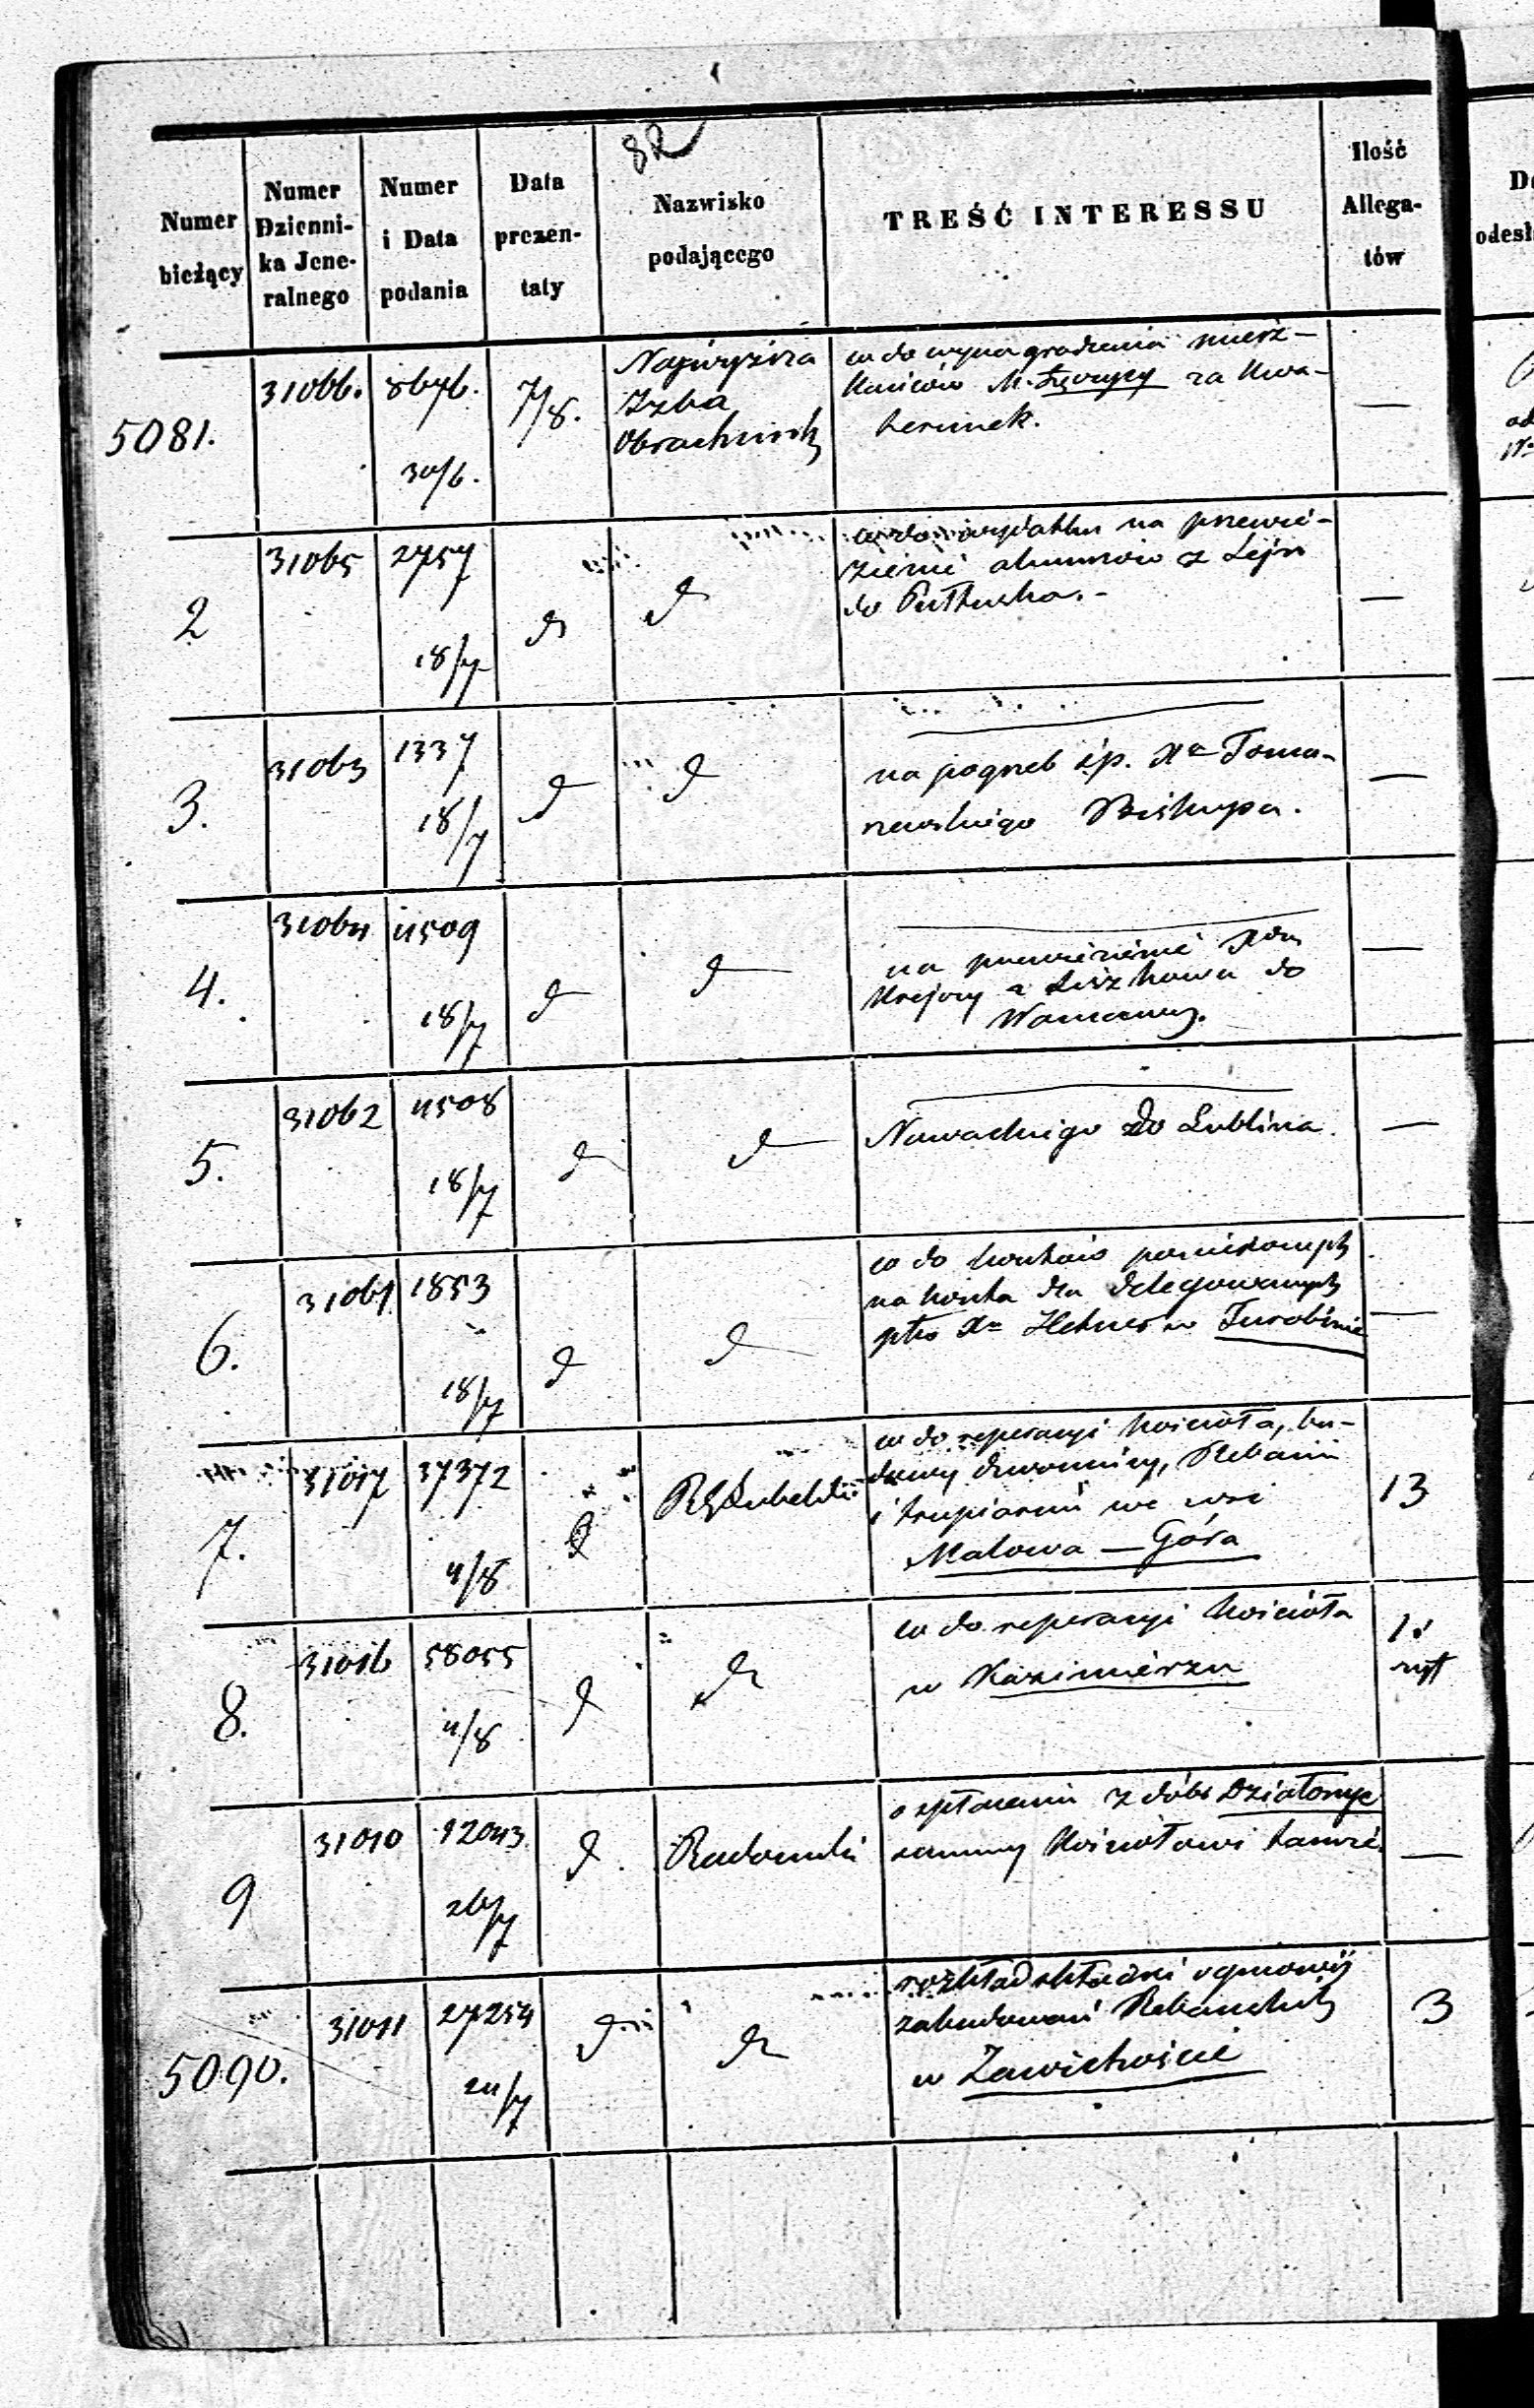 82
Numer bieżący
Numer Dzienni-
ka Jene-
ralnego
Numer
i Data
podania
Data
prezen-
taty
Nazwisko
podającego
TREŚĆ INTERESSU
Ilość
Allega-
tów
5081.
31066.
8676.
30/6.
7/8.
Najwyższa
Izba
Obrachunk
co do wynagrodzenia miesz-
kańców M. Łęczycy za kwa-
terunek.
—
2
31065
2757
18/7
d
d
co do wydatku na przewie-
zienie alumnów z Sejn
do Pułtuska.-
—
3.
31063
1337
18/7
d
d
na pogrzeb śp. Xa Toma-
szewskiego Biskupa.
—
4.
31064
4509
18/7
d
d
na przewiezienie
z do
—
5.
31062
4508
18/7
d
d
Nawadzkiego do Lublina.
—
6.
31061
1853
18/7
d
d
co do
na dla delegowanych
Xa w Turobinie
—
7.
31017
37372
4/8
d
RG Lubelski
co do reperacyi kościoła, bu-
dowy dzwonnicy, Plebanii
i trupiarni we wsi
Malowa — Góra
13
8.
31016
58055
4/8
d
d
co do reperacyi kościoła
w Kazimierzu
1.
ryst
9
31010
12043.
26/7
d.
Radomski
o spłacenie z dóbr Działoszyc
summy Kościołowi tamże.
—
5090.
31011
27254
24/7
d
d
rozkład składki ogniowej
zabudowań Plebańskich
w Zawichoście
3